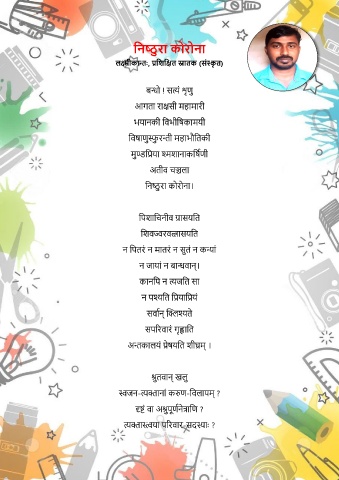 निष्ठुरा कोरोना
लक्ष्मीकान्तः, प्रशिक्षित स्नातक (संस्कृत)
बन्धो ! सत्यं शृणु
आगता राक्षसी महामारी
भयानकी विभीषिकामयी
विषाणुस्फुरन्ती महाभौतिकी
मुण्डप्रिया श्मशानाकर्षिणी
अतीव चञ्चला
निष्ठुरा कोरोना।
पिशाचिनीव ग्रासयति
शिवज्वरवत्त्रासयति
न पितरं न मातरं न सुतं न कन्यां
न जायां न बान्धवान्।
कानपि न त्यजति सा
न पश्यति प्रियाप्रियं
सर्वान् क्लिश्यते
सपरिवारं गृह्णाति
अन्तकालयं प्रेषयति शीघ्रम् ।
श्रुतवान् खलु
स्वजन-त्यक्तानां करुण-विलापम् ?
दृष्टं वा अश्रुपूर्णनेत्राणि ?
त्यक्तास्त्वया परिवार-सदस्याः ?